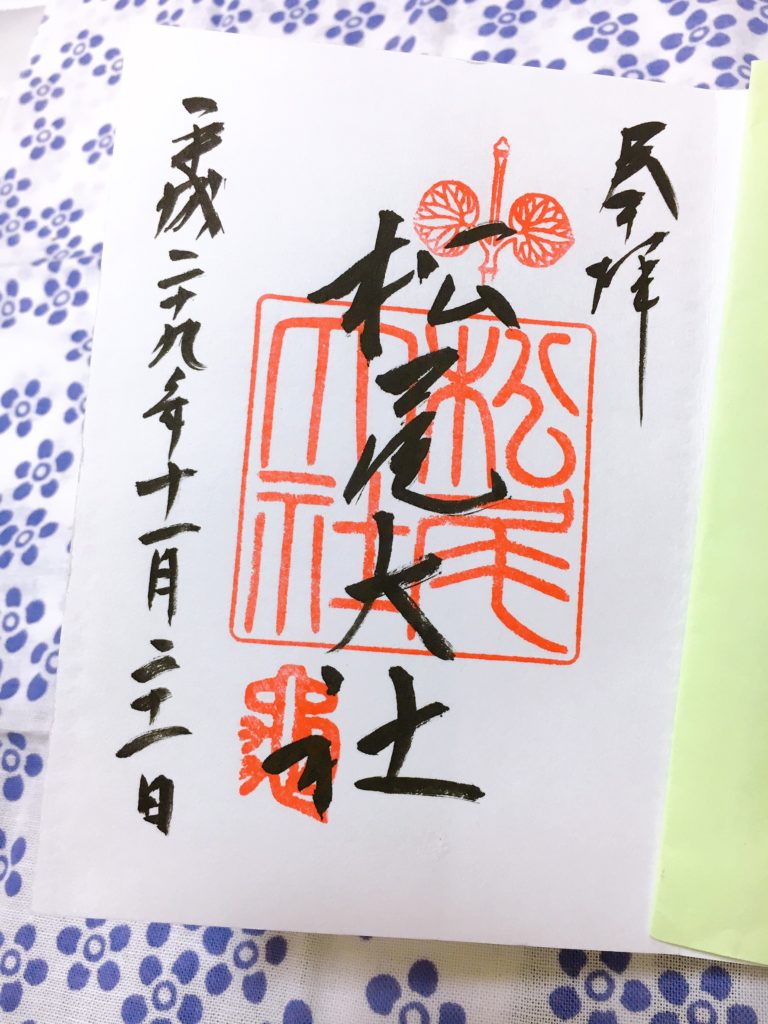 奉拝
松尾大社
松尾
大社
平成二十九年十一月二十一日